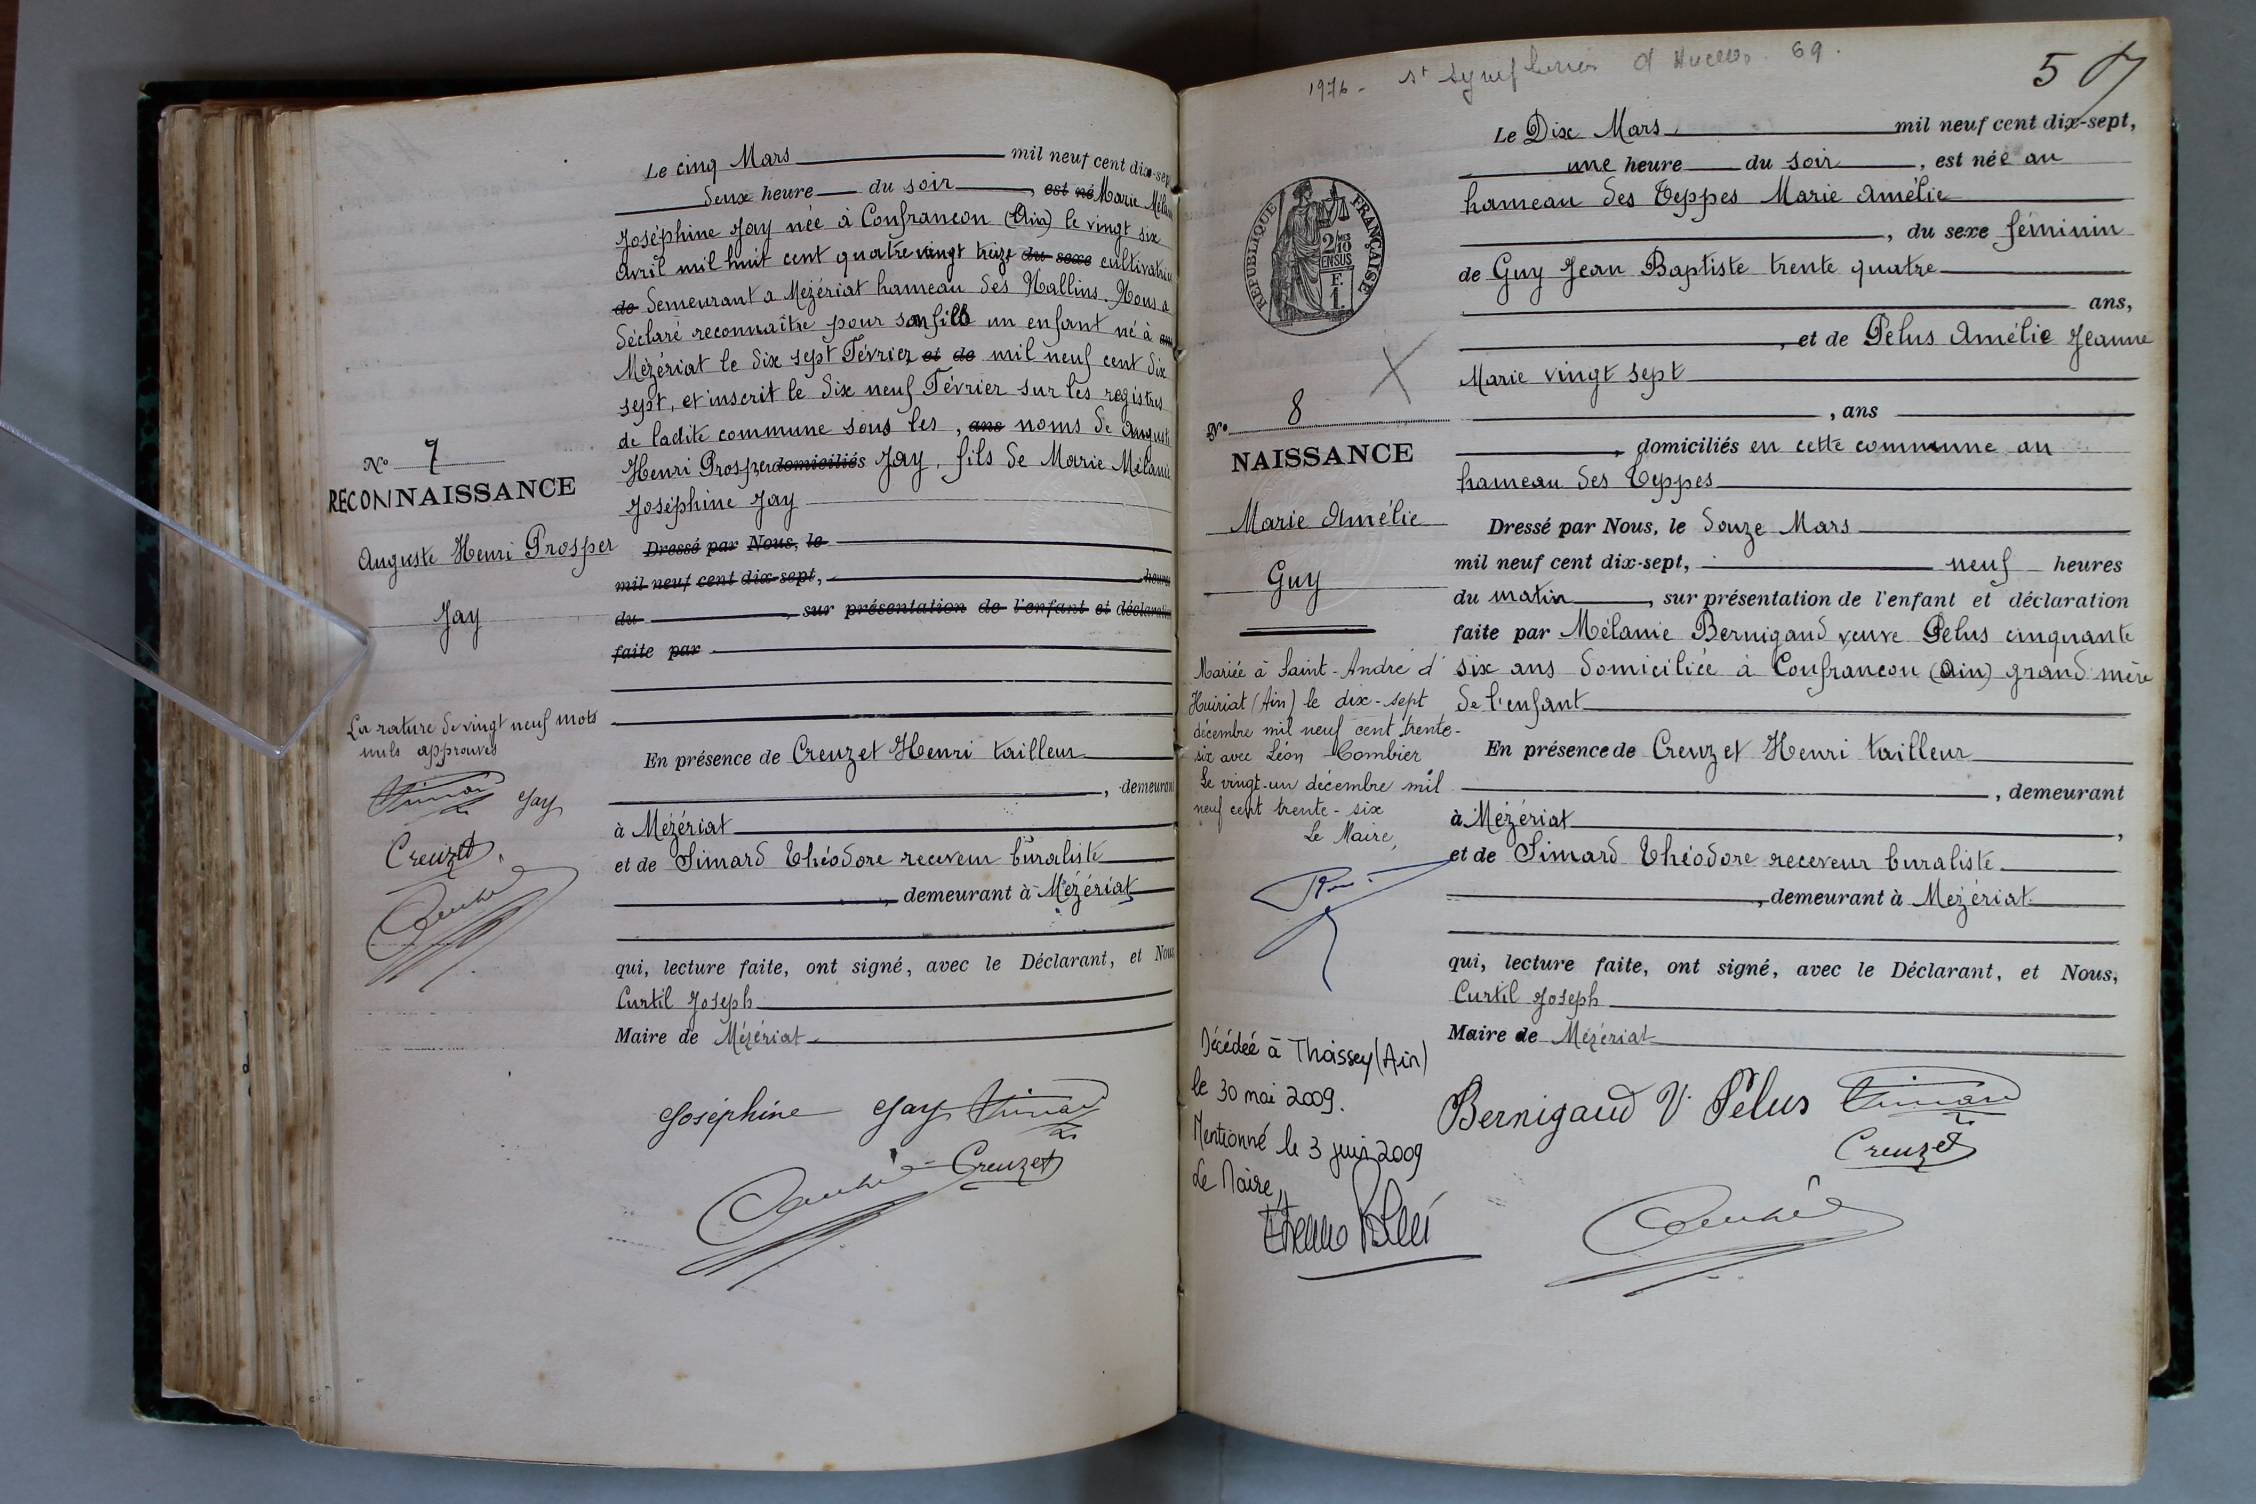 Le cinq Mars mil neuf cent dix-sep
deux heure du soir, est né Marie Mélan
Joséphine Jay née à Confrancon (Ain) le vingt six
Avril mil huit cent quatre vingt treize du sexe cultivatrice
de demeurant a Mézériat hameau des Nallins. Nous a
déclaré reconnaître pour son fils un enfant né à
Mézériat le dix sept Février et de mil neuf cent dix
sept, et inscrit le dix neuf Février sur les registres
de ladite commune sous les, ans noms de Auguste
Henri Prosper domiciliés Jay, fils de Marie Mélanie
Joséphine Jay
N° 7
RECONNAISSANCE
Auguste Henri Prosper
Jay
Dressé par Nous, le
mil neuf cent dix-sept, heures
du, sur présentation de l'enfant et déclaration
faite par
La rature de vingt neuf mots
nuls approuvés
Simard Jay
Creuzet
En présence de Creuzet Henri tailleur
, demeurant
à Mézériat
et de Simard Théodore receveur buraliste
, demeurant à Mézériat
qui, lecture faite, ont signé, avec le Déclarant, et Nous
Curtil Joseph
Maire de Mézériat
Joséphine Jay Simard
Creuzet
1976 - St 69.
5
Le Dix Mars mil neuf cent dix-sept,
une heure du soir, est née au
hameau des Teppes Marie Amélie
, du sexe féminin
de Guy Jean Baptiste trente quatre
ans,
, et de Pelus Amélie Jeanne
Marie vingt sept
, ans
, domiciliés en cette commune au
hameau des Teppes
REPUBLIQUE FRANÇAISE
2/10 MES
EN SUS
F.
1.
N° 8
NAISSANCE
Marie Amélie
Guy
Dressé par Nous, le douze Mars
mil neuf cent dix-sept, neuf heures
du matin, sur présentation de l'enfant et déclaration
faite par Mélanie Bernigaud veuve Pelus cinquante
six ans domiciliée à Confrancon (Ain) grand mère
de l'enfant
Mariée à Saint-André d'
Huiriat (Ain) le dix-sept
décembre mil neuf cent trente-
six avec Léon Combier
Le vingt-un décembre mil
neuf cent trente-six
Le Maire,
En présence de Creuzet Henri tailleur
, demeurant
à Mézériat,
et de Simard Théodore receveur buraliste
, demeurant à Mézériat
qui, lecture faite, ont signé, avec le Déclarant, et Nous,
Curtil Joseph
Maire de Mézériat
Décédeé à Thoissey (Ain)
le 30 mai 2009.
Mentionné le 3 juin 2009
Le Maire,
Bernigaud V. Pélus Simard
Creuzet